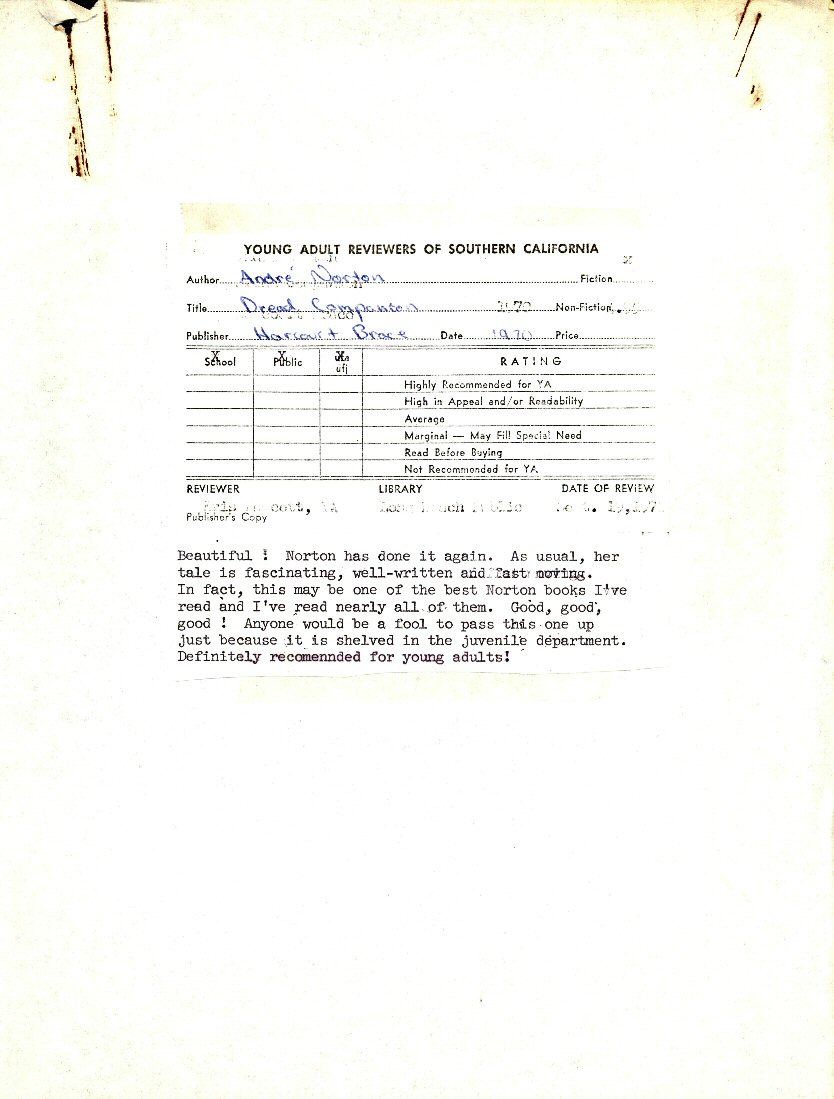 YOUNG ADULT REVIEWERS OF SOUTHERN CALIFORNIA
X
Author André Norton Fiction
Title Dread Companion Non-Fiction
Publisher Harcourt Brace Date 1970 Price
X X
School Public RATING
Highly Recommended for YA
High in Appeal and/or Readability
Average
Marginal — May Fill Special Need
Read Before Buying
Not Recommended for YA
REVIEWER LIBRARY DATE OF REVIEW
Publisher's Copy
Beautiful ! Norton has done it again. As usual, her
tale is fascinating, well-written and fast moving.
In fact, this may be one of the best Norton books I've
read and I've read nearly all of them. Good, good,
good ! Anyone would be a fool to pass this one up
just because it is shelved in the juvenile department.
Definitely recomennded for young adults!